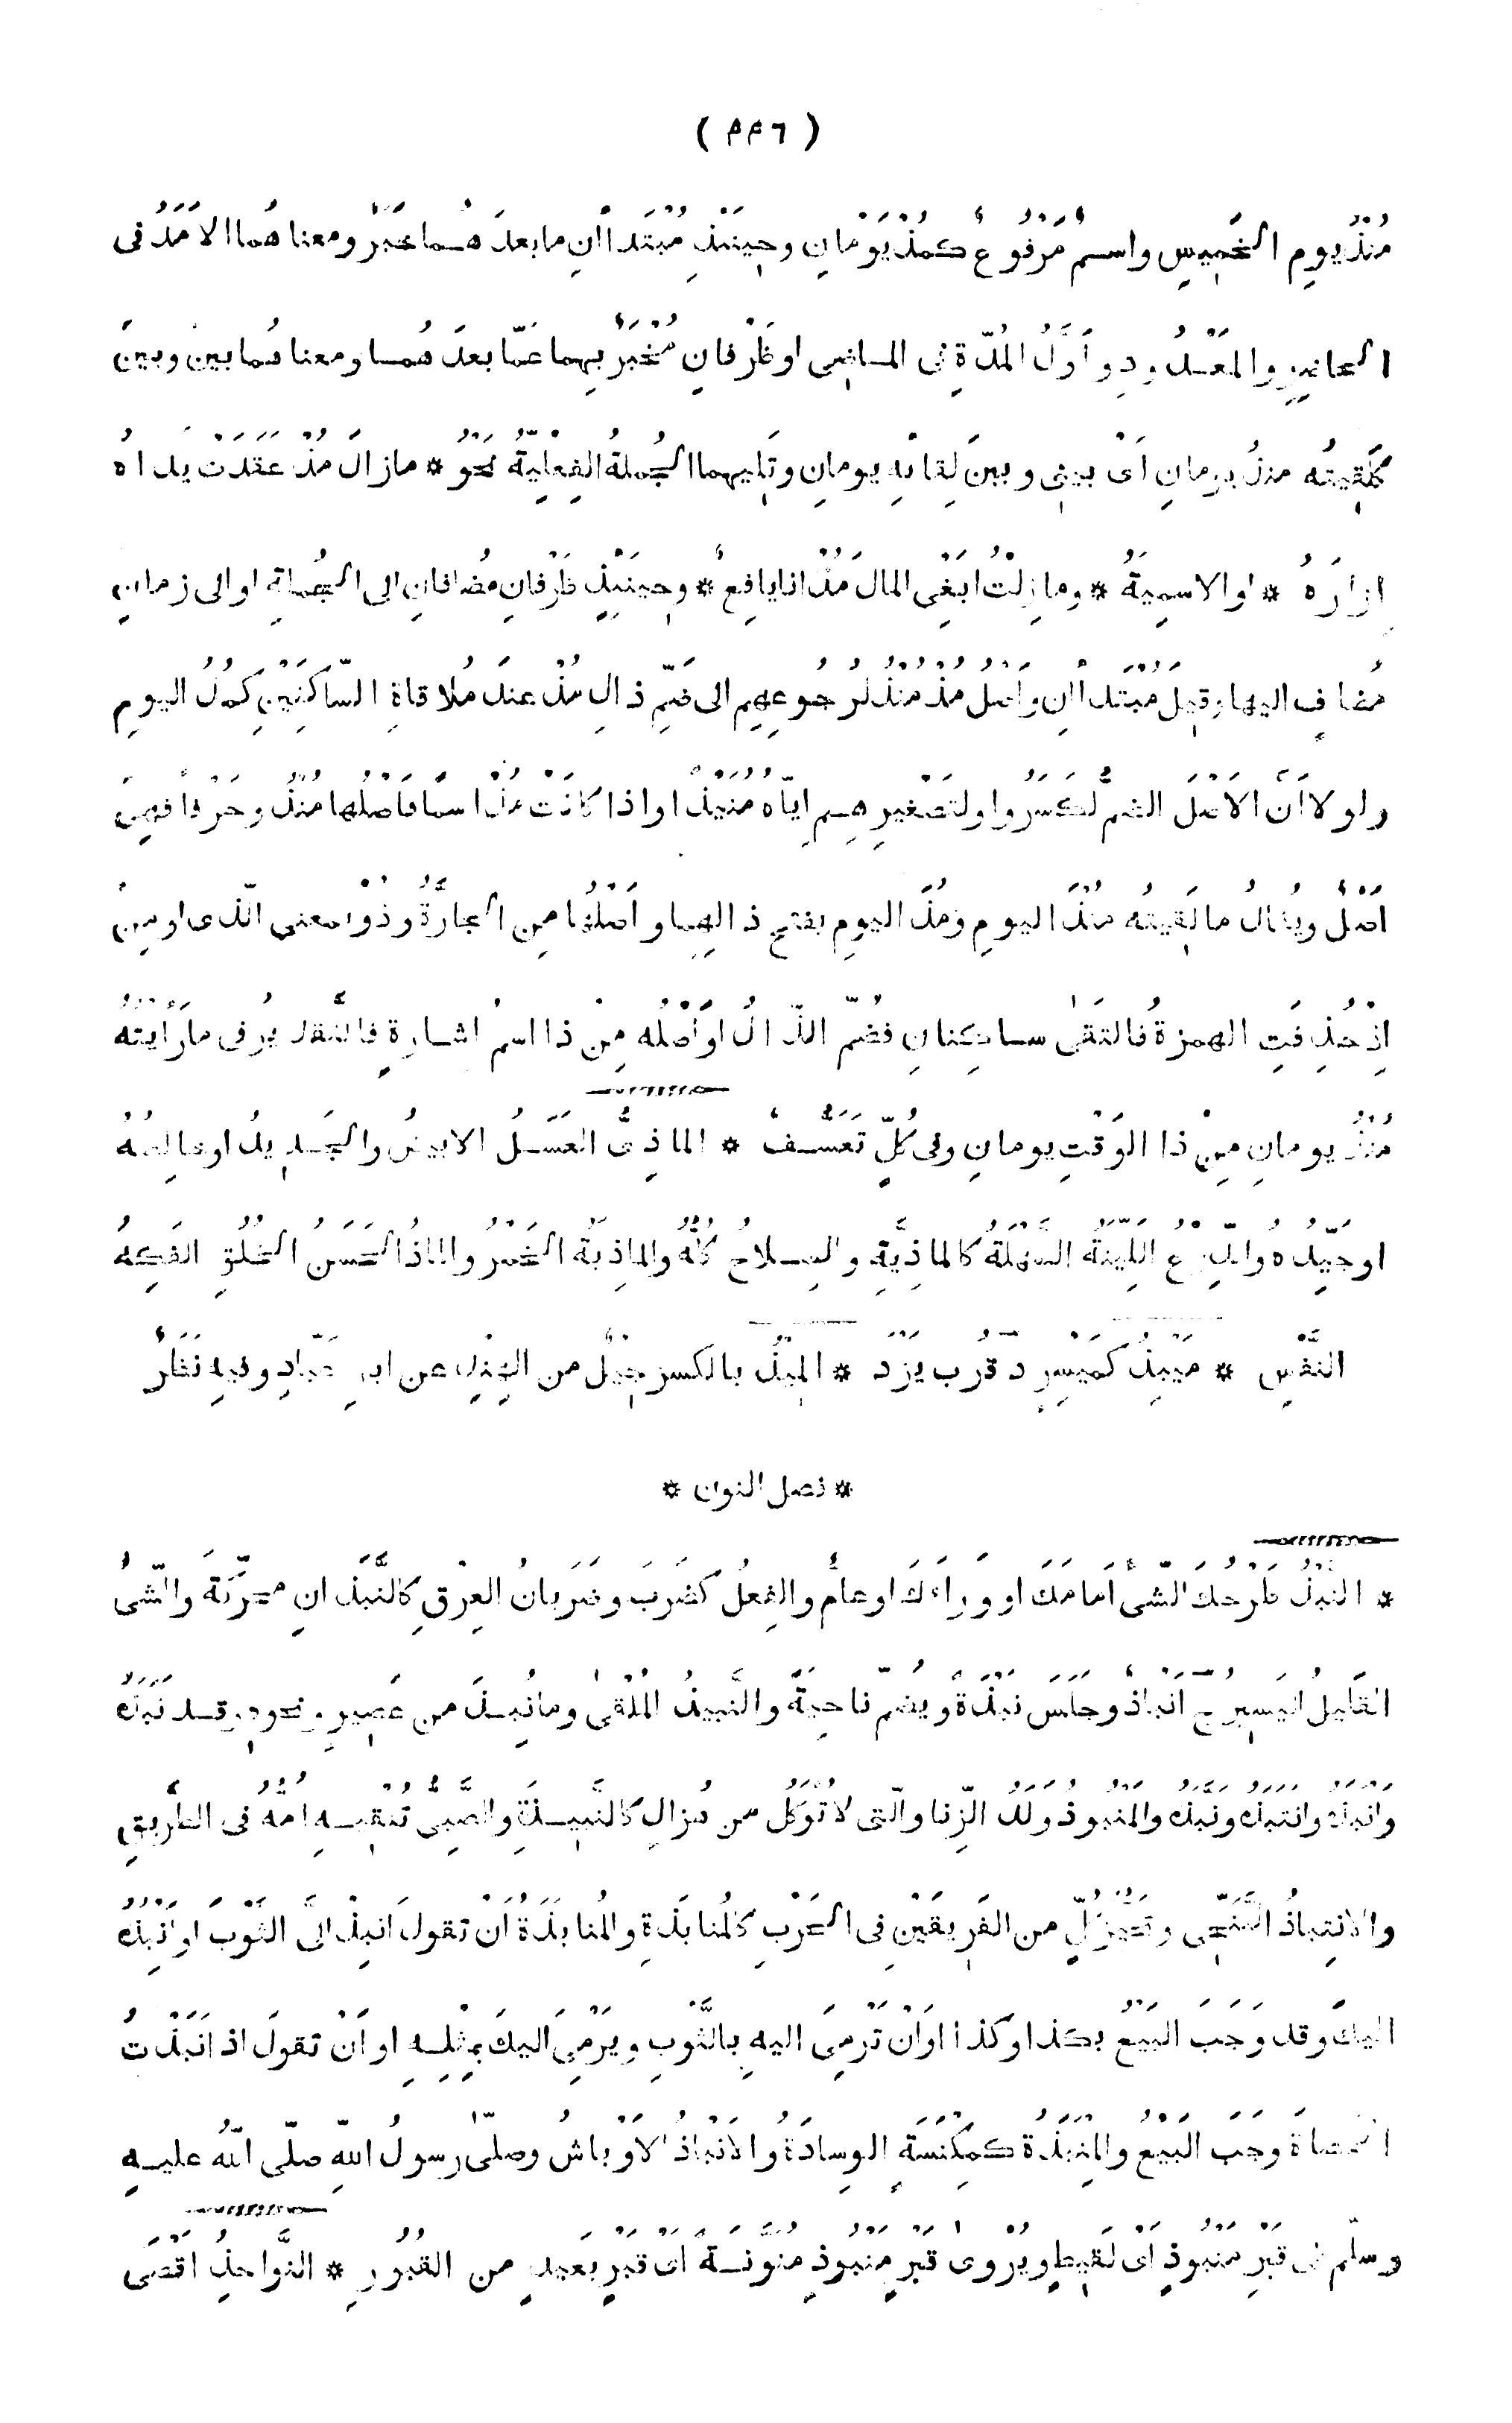 ( ٤٤٦ )
مُنْذُ يومِ الخَمِيسِ واسمٌ مَرْفُوعٌ كمُنْذُ يَوْمانِ وحِينَئِذٍ مُبْتَدَاانِ مابعدَهُما خَبَرٌ ومعناهُما الاَمَدُ فى
الحاضِرِ والمَعْدُودِ و اَوَّلُ المُدّةِ فى الماضِى اوظَرْفانِ مُخْبَرٌ بِهِما عَمّا بعدَهُما ومعناهُما بينَ وبينَ
كلَقِيتُه منذُ يومانِ اَىْ بينِى وبينَ لِقائِهِ يومانِ وتَلِيهِما الجُملةُ الفِعْلِيّةُ نحوُ * مازالَ مُذْ عَقَدَتْ يداهُ
اِزارَهُ * او الاسمِيةُ * ومازِلْتُ اَبْغِى المالَ مُذْ انا يافِعٌ * وحِينَئِذٍ ظَرْفانِ مُضافانِ الى الجُملةِ او الى زمانٍ
مُضافٍ اليها وقيلَ مُبْتَدَاانِ واَصْلُ مُذْ مُنْذُ لرُجُوعِهِم الى ضَمِّ ذالِ مُذْ عندَ مُلاقاةِ السّاكِنَيْنِ كمُذُ اليومِ
ولولا اَنَّ الاَصْلَ الضمُّ لَكَسَرُوا ولتَصْغِيرِهِم اِيّاه مُنَيْذٌ او اذا كانَتْ مُذْ اسمًا فاَصْلُها مُنْذُ وحَرْفًا فهِىَ
اَصْلٌ ويُقالُ ما لَقِيتُه مُنْذَ اليومِ ومُذَ اليومِ بفتحِ ذالِهِما واَصْلُها مِن الجارَّةُ وذُوْ بمعنى الّذى او مِن
اِذْ حُذِفَتِ الهمزةُ فالتَقَى ساكِنانِ فضُمَّ الذّالُ او اَصْلُه مِنْ ذا اسمُ اشارةٍ فالتَّقْدِيرُ فى ما رَاَيْتُهُ
مُنْذُ يومانِ مِنْ ذا الوَقْتِ يومانِ وفى كُلٍّ تَعَسُّفٌ * الماذِىُّ العَسَلُ الابيضُ والحَديدُ او خالِصُهُ
او جَيِّدُه والدِّرْعُ اللّيِنَةُ السَّهْلَةُ كالماذِيَّةِ والسِلاحُ كلُّهُ والماذِيَّةُ الخَمْرُ والماذُ الحَسَنُ الخُلُقِ الفَكِهُ
النَّفْسِ * مَيْبَذُ كمَيْسِرٍ د قُرْبَ يَزْدَ * المِيْذُ بالكسر جِيلٌ من الهِنْدِ عن ابنِ عَبّادٍ وفيهِ نَظَرٌ
* فصل النون *
* النَبْذُ طَرْحُكَ الشّىءَ اَمامَكَ او وراءَكَ او عامٌّ والفِعْلُ كضَرَبَ وضَرَبانُ العِرْقِ كالنَّبَذَانِ محرّكةً والشّىءُ
القَليلُ اليَسِيرُ ج اَنْباذٌ وجَلَسَ نَبْذَةً ويضمُّ ناحِيَةً والنَّبِيذُ المُلْقَى وما نُبِذَ من عَصِيرٍ ونحوِهِ وقد نَبَذَهُ
وَاَنْبَذَهُ وانْتَبَذَهُ ونَبَّذَهُ والمَنْبُوذُ وَلَدُ الزِّنا والّتى لا تُوكَلُ من هُزالٍ كالنَّبِيذَةِ والصَّبِىُّ تُلْقِيهِ اُمُّهُ فى الطَّرِيقِ
والاِنْتِباذُ التَّنَحِّى وتَحَيُّزُ كُلٍّ من الفَرِيقَيْنِ فى الحَرْبِ كالمُنابَذَةِ والمُنابَذَةُ اَنْ تقولَ اَنْبِذْ اِلَىَّ الثَوْبَ او اَنْبِذُهُ
اليكَ وقد وَجَبَ البَيْعُ بكذا وكذا او اَنْ تَرْمِىَ اليهِ بالثَّوْبِ ويَرْمِىَ اليكَ بمِثْلِهِ او اَنْ تقولَ اذا نَبَذْتُ
الحَصاةَ وَجَبَ البَيْعُ والمِنْبَذَةُ كمِكْنَسَةٍ الوِسادَةُ والاَنْباذُ الاَوْباشُ وصَلّى رسولُ اللهِ صلّى اللهُ عليهِ
وسلّم على قَبْرِ مَنْبُوذٍ اَىْ لَقِيطٍ ويُرْوَى قَبْرٍ مَنْبُوذٍ مُنَوَّنَةً اَىْ قَبْرٍ بَعيدٍ من القُبُورِ * النَّواجِذُ اَقْصَى